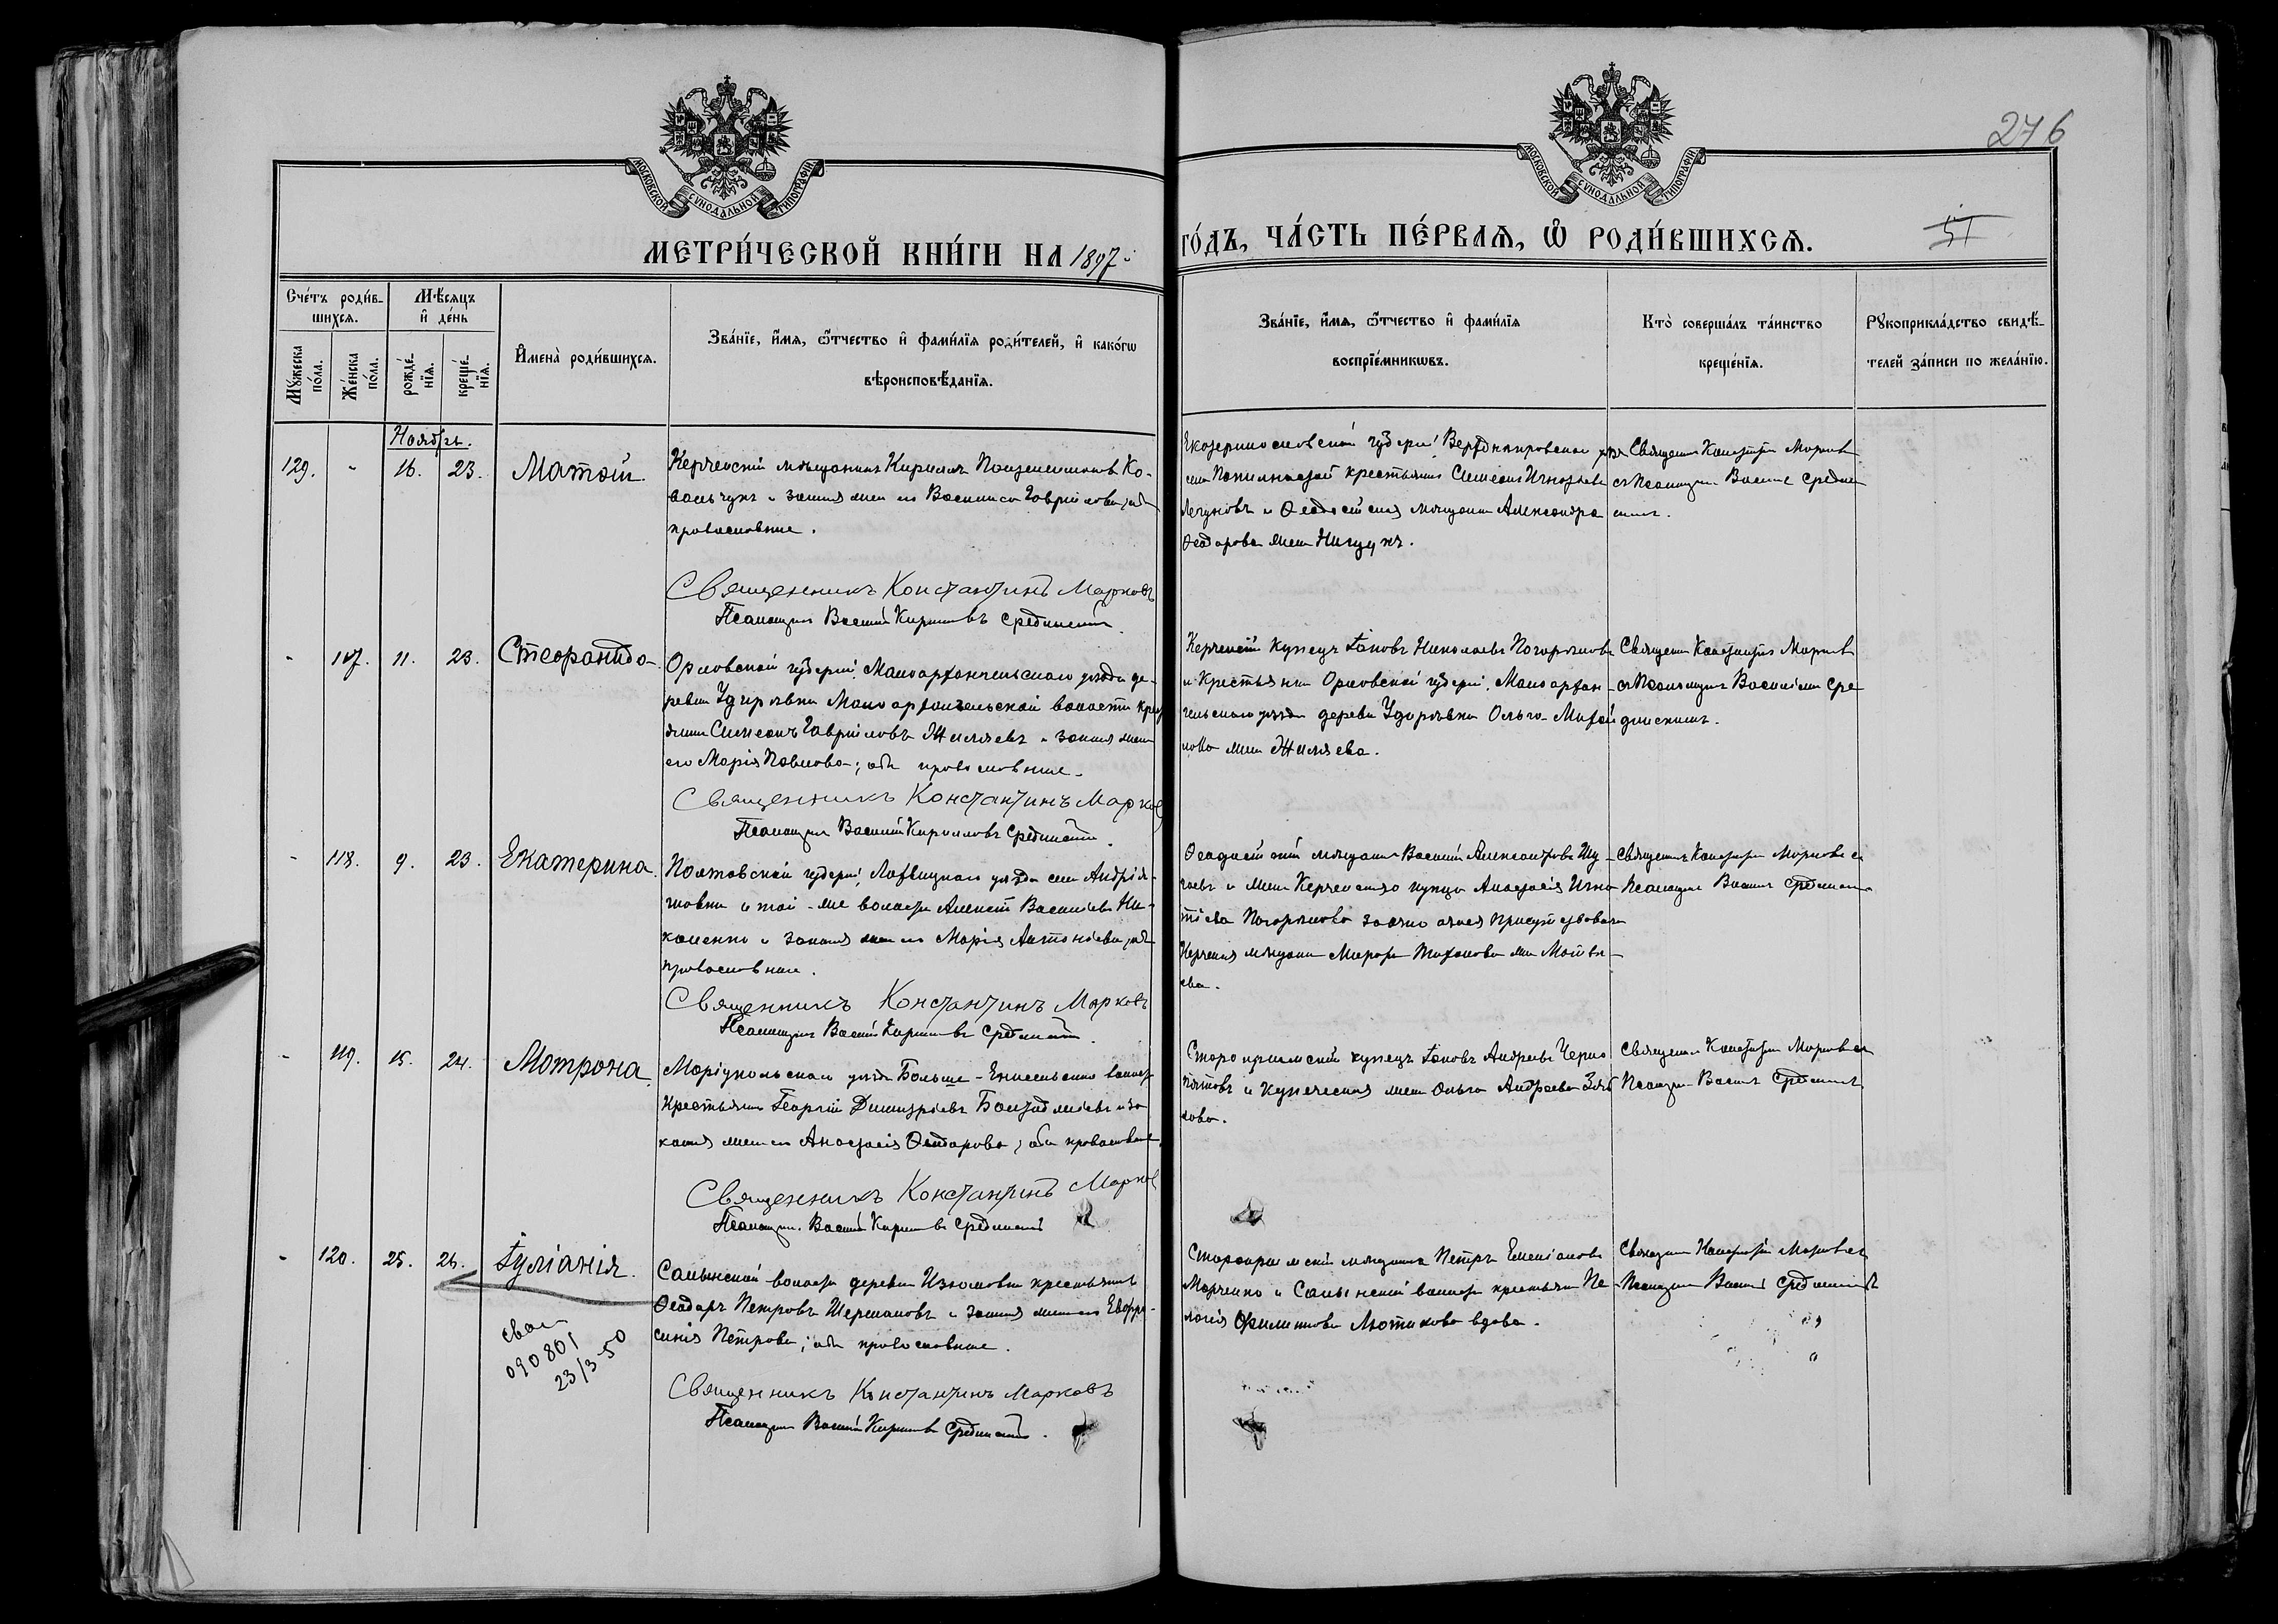 276
51
МОСКОВСКОЙ СѴНОДАЛЬНОЙ ТИПОГРАФІИ
МОСКОВСКОЙ СѴНОДАЛЬНОЙ ТИПОГРАФІИ
МЕТРИ́ЧЕСКОЙ КНИ́ГИ НА 1897
ГО́ДЪ, ЧА́СТЬ ПЕ́РВАЯ, Ѡ РОДИ́ВШИХСЯ.
Сче́тъ роди́в-
шихся.
Мѣ́сяцъ
и де́нь
Мꙋ́жеска
по́ла.
Же́нска
по́ла.
рожде́-
нїя.
креще́-
нїя.
И҆мена̀ роди́вшихся.
Зва́нїе, и҆́мя, ѻ҆́тчество и҆ фами́лїя роди́телей, и҆ како́гѡ
вѣроисповѣ́данїя.
Зва́нїе, и҆́мя, ѻ҆́тчество и҆ фами́лїя
воспрїе́мникѡвъ.
Кто̀ соверша́лъ та́инство
креще́нїя.
Рꙋкоприкла́дство свидѣ́-
телей за́писи по жела́нїю.
Ноябрь.
129. - 16. 23. Матѳій.
Керченскій мѣщанинъ Кириллъ Ко-
вальчукъ и законная жена его Василиса Гаврилова, оба
православные.
Священникъ Константинъ Марковъ
Псаломщикъ Василій Кирилловъ Срединскій
губерніи Верхнеднѣпровскаго
села крестьянинъ Симеонъ Игнатьевъ
и Ѳеодосійская мѣщанка Александра
Ѳеодорова жена
Священникъ Константинъ Марковъ
съ Псаломщикомъ Василіемъ Средин
скимъ.
- 117. 11. 23. Стефанида
Орловской губерніи, Малоархангельскаго уѣзда де-
ревни Удеревки Малоархангельской волости крес
Симеонъ Гавриловъ Жиляевъ и законная жена
его Марія Павлова; оба православные.
Священникъ Константинъ Марков
Псаломщикъ Василій Кирилловъ Срединскій.
Керченскій купецъ Іаковъ Николаевъ Погорѣловъ
и Крестьянка Орловской губерніи, Малоархан
гельскаго уѣзда деревни Ольга Михай
лова жена Жиляева.
Священникъ Константинъ Марковъ
съ Псаломщикомъ Василіемъ Сре
динскимъ.
- 118. 9. 23. Екатерина.
Полтавской губерніи, Лохвицкаго уѣзда села Андрія-
шовки и той-же волости Алексѣй Василіевъ Ни-
коленко и законная жена его Марія Антоніева, оба
православные.
Священникъ Константинъ Марковъ
Псаломщикъ Василій Кирилловъ Срединскій.
Ѳеодосійскій мѣщанинъ Василій Александровъ
и жена Керченскаго купца Анастасія Игна
тіева Погорѣлова заочно за нея присутствовала
Керченская мѣщанка Тихонова жена Матвѣ-
ева.
Священникъ Константинъ Марковъ съ
Псаломщикомъ Василіемъ Срединскимъ
- 119. 15. 24. Матрона.
Маріупольскаго уѣзда Больше-Енисольской волости
крестьянинъ Георгій Димитріевъ и за
конная жена его Анастасія Ѳеодорова; оба православные.
Священникъ Константинъ Марков
Псаломщикъ Василій Кирилловъ Срединскій
Старокрымскій купецъ Іаковъ Андреевъ Черно
и купеческая жена Ольга Андреева Зяб
кова.
Священникъ Константинъ Марковъ съ
Псаломщикомъ Василіемъ Срединскимъ
- 120. 25. 26. Іуліанія.
Салынской волости деревни Изюмовки крестьянинъ
Ѳеодоръ Петровъ Шершановъ и законная жена его Евфро-
синія Петрова; оба православные.
Священникъ Константинъ Марковъ
Псаломщикъ Василій Кирилловъ Срединскій.
Старокрымскій мѣщанинъ Петръ Емеліановъ
Марченко и Салынской волости крестьянка Пе
лагія Филиппова Лютикова вдова.
Священникъ Константинъ Марковъ съ
Псаломщикомъ Василіемъ Срединскимъ
090801
23/3-50